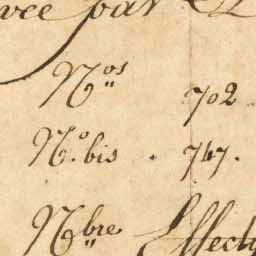 par
N.os 702
N.o bis . 747.
N.bre Effecti